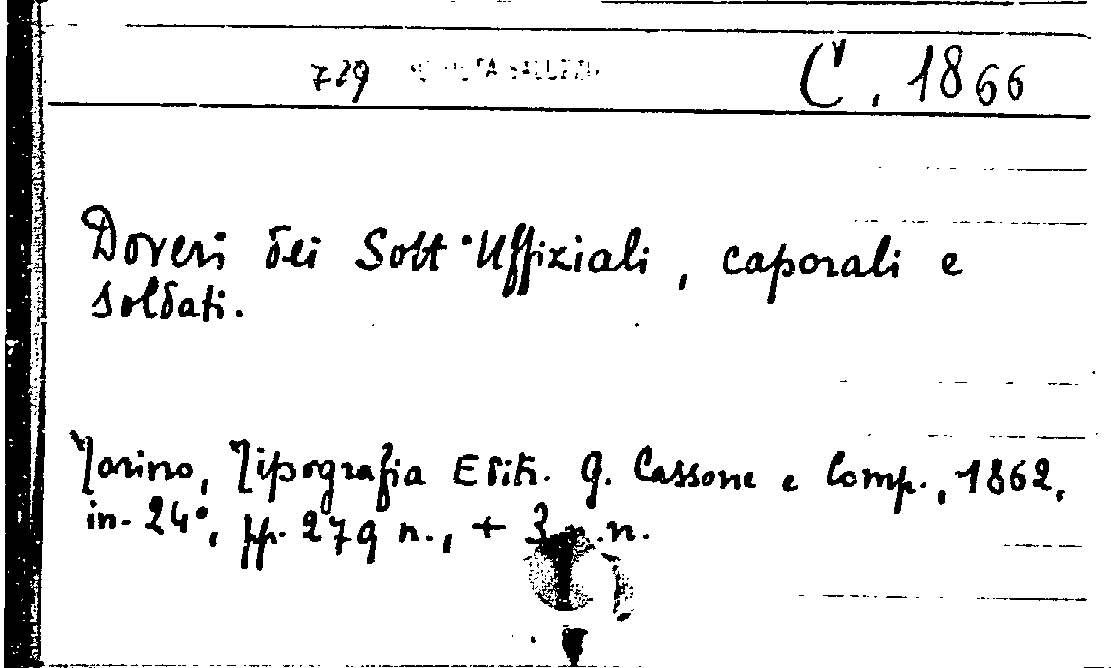 739 C. 1866
Doveri dei Sott'Uffiziali, caporali e
soldati.
Torino, Tipografia Edit. G. Cassone e Comp., 1862,
in-24°, pp. 279 n., + 3 n.n.